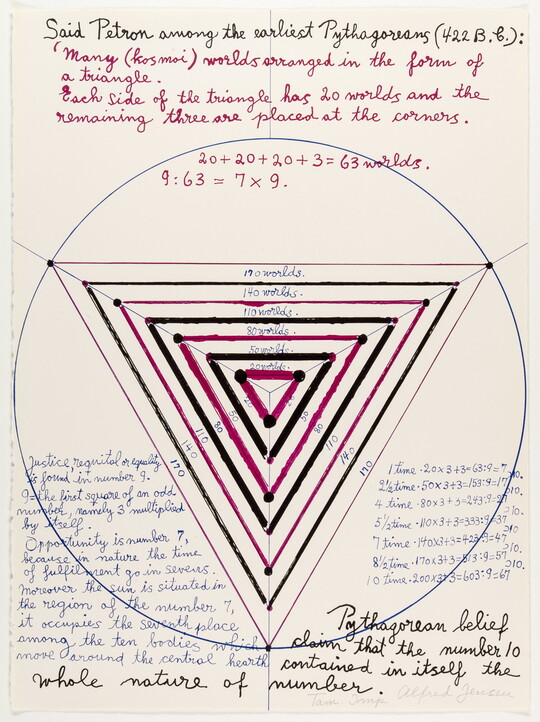 Said Petron among the earliest Pythagoreans (422 B.C.):
'Many (kosmoi) worlds arranged in the form of
a triangle.
Each side of the triangle has 20 worlds and the
remaining three are placed at the corners.
20+20+20+3=63 worlds.
9:63 = 7×9.
170 worlds.
140 worlds.
110 worlds.
80 worlds.
50 worlds.
20 worlds.
20
20
50
50
80
80
110
110
140
140
170
170
Justice, requital or equality
is found in number 9.
9=the first square of an odd
number, namely 3 multiplied
by itself.
Opportunity is number 7,
because in nature the time
of fulfilment go in sevens.
Moreover the sun is situated in
the region of the number 7,
it occupies the seventh place
among the ten bodies which
move around the central hearth
1 time · 20×3+3=63:9=7
>10.
2½ time · 50×3+3=153:9=17
>10.
4 time · 80×3+3=243:9=27
>10.
5½ time · 110×3+3=333:9=37
>10.
7 time · 140×3+3=423:9=47
>10.
8½ time · 170×3+3=513:9=57
>10.
10 time · 200×3+3=603:9=67
Pythagorean belief
claim that the number 10
contained in itself the
whole nature of number.
Tam. Imp. Alfred Jensen